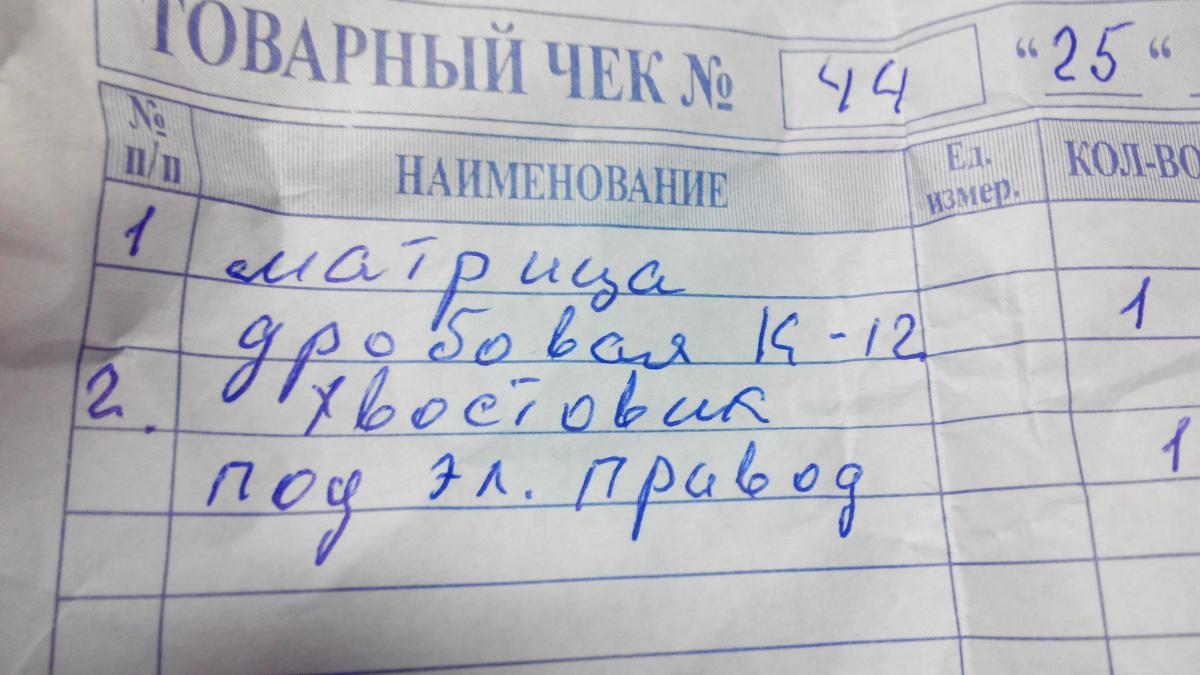 ТОВАРНЫЙ ЧЕК № 44 “25“
№ п/п НАИМЕНОВАНИЕ Ед. измер. КОЛ-ВО
1 матрица
дробовая К-12 1
2. хвостовик
под эл. правод 1